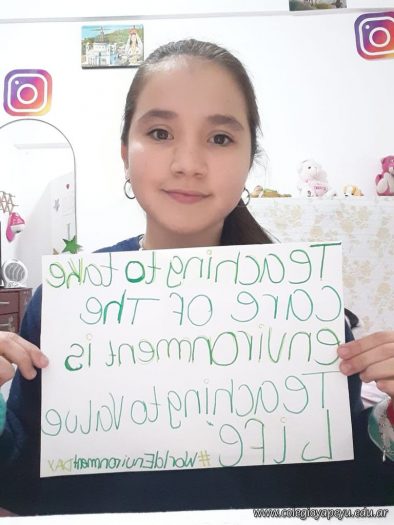 Teaching to take
care OF The
environment is
Teaching to Value
Life
#WorldEnvironmentDAY
www.colegioyapeyu.edu.ar